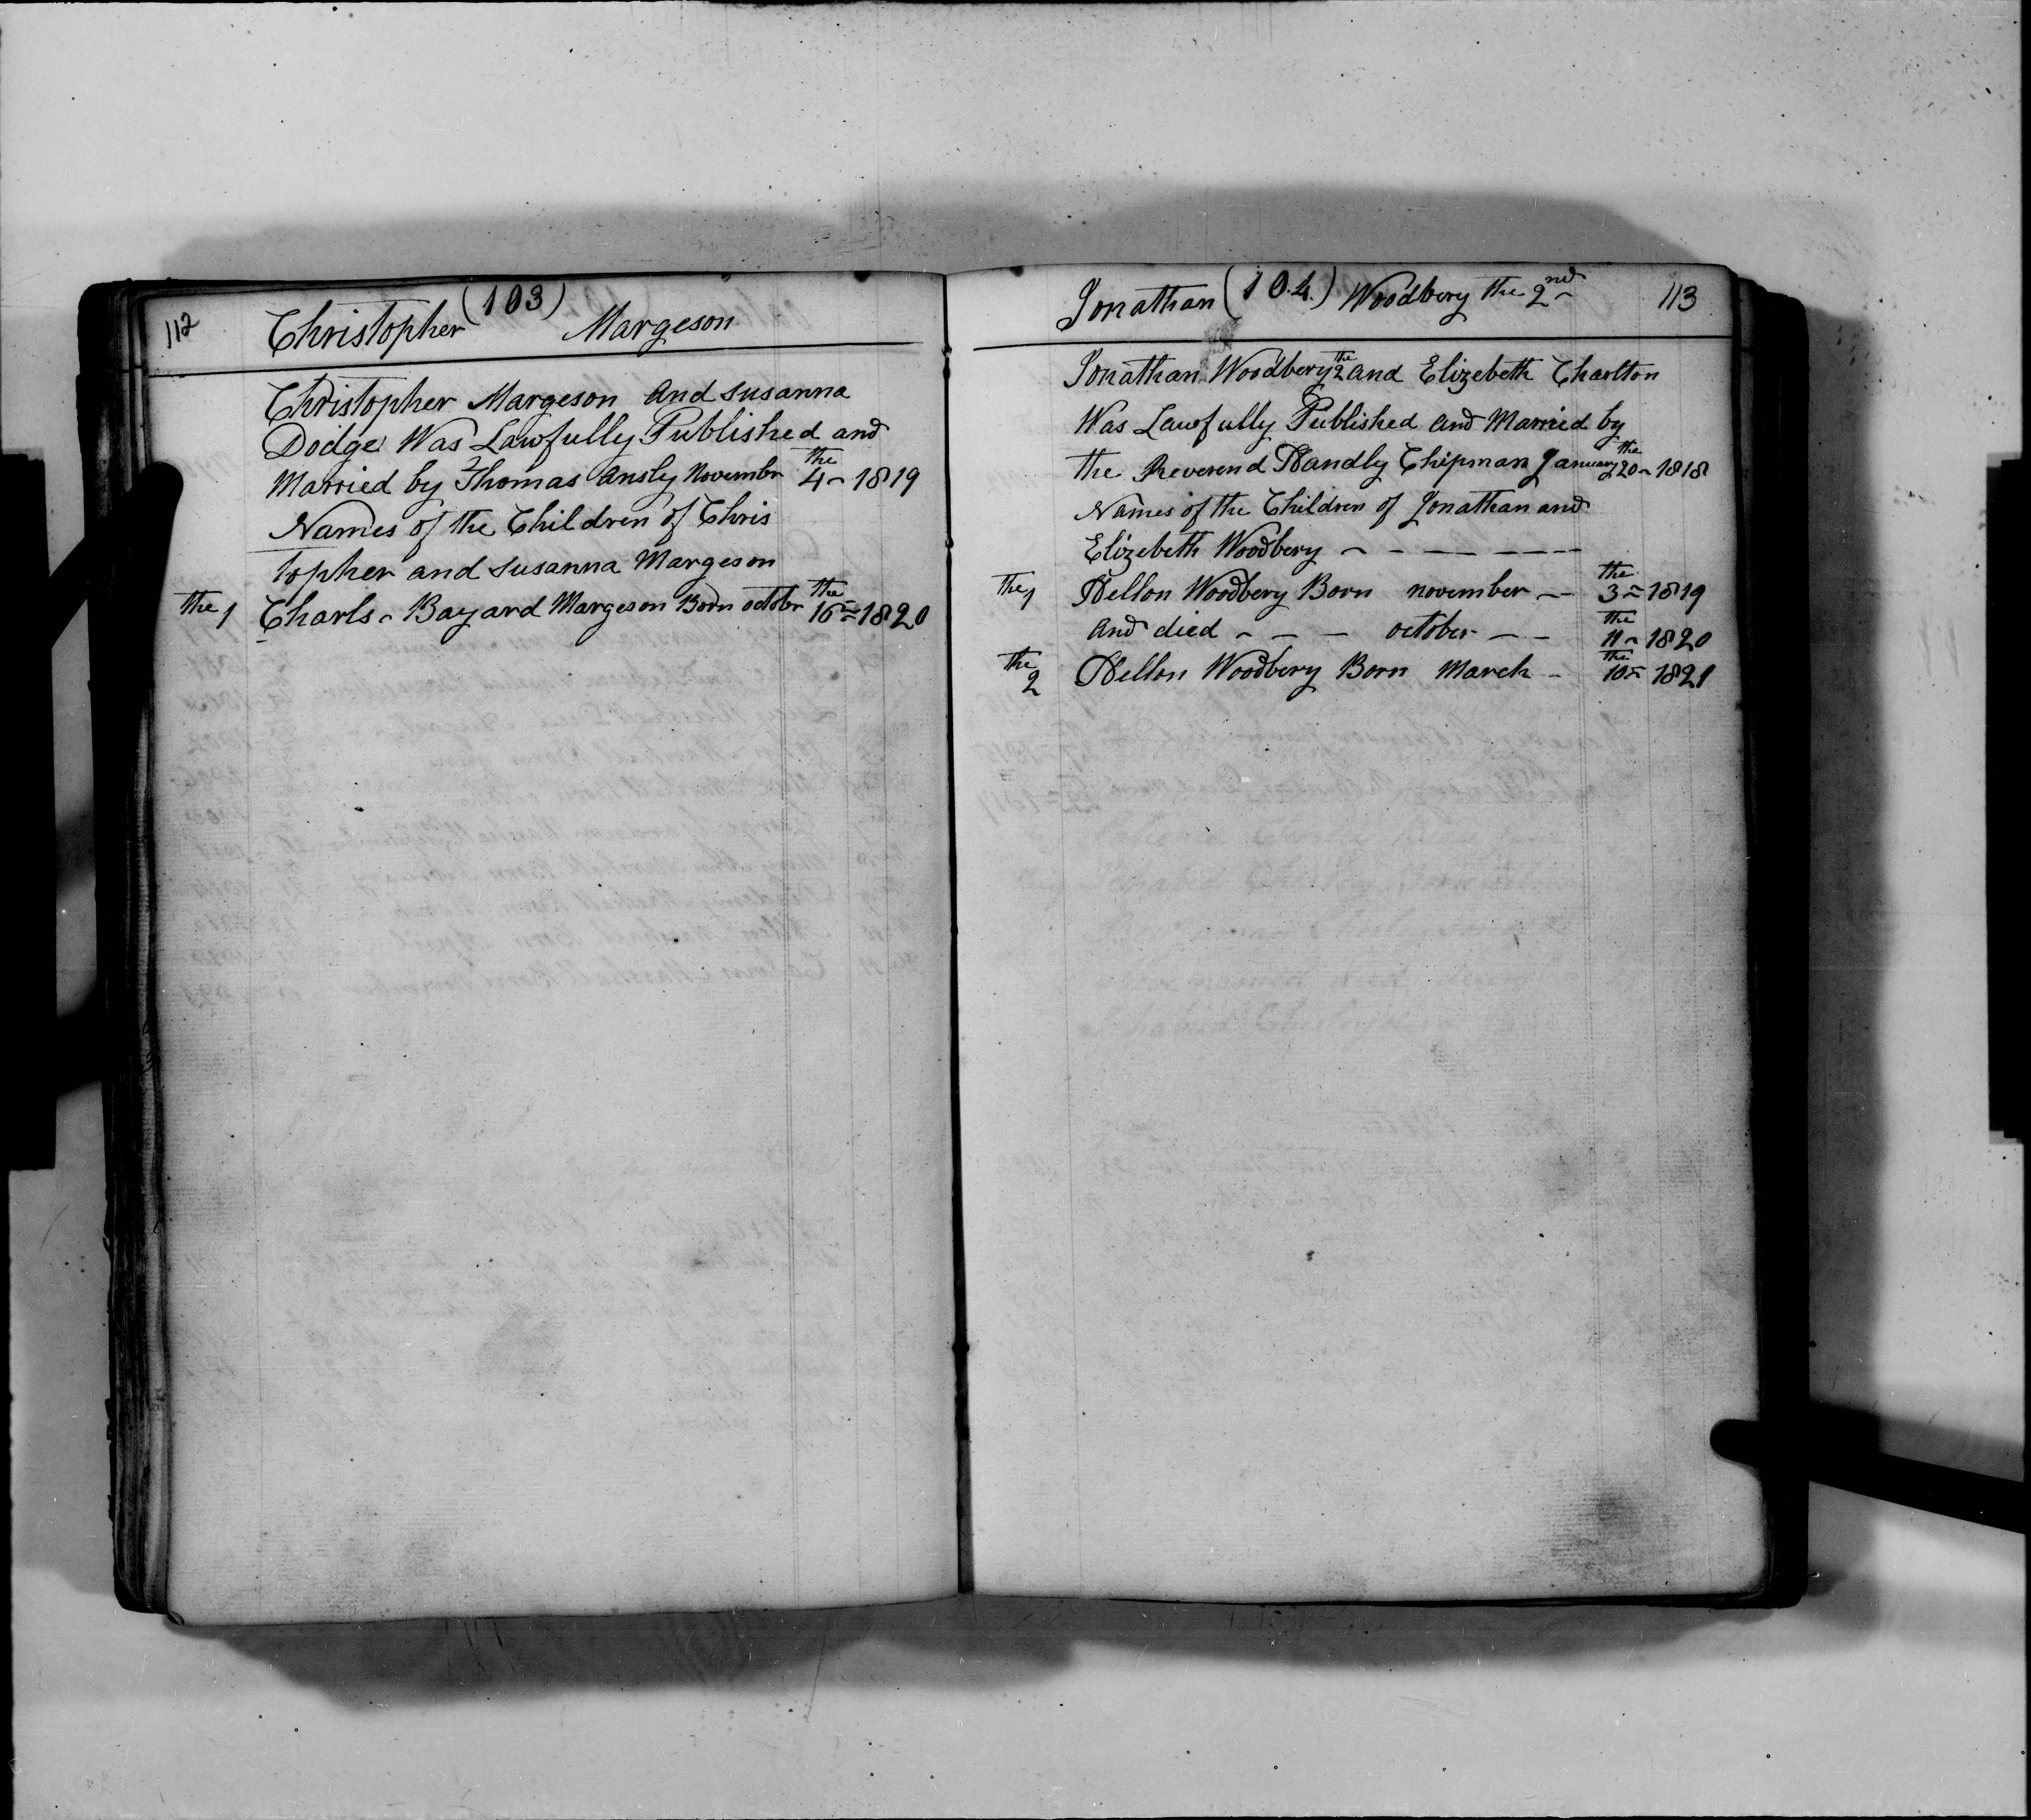 112
(103)
Christopher Margeson
Christopher Margeson and susanna
Dodge Was Lawfully Published and
Married by Thomas Ansly Novembr the 4 - 1819
Names of the Children of Chris
topher and susanna Margeson
the 1 Charls - Bayard Margeson Born octobr the 16 = 1820
Jonathan (104) Woodbery the 2nd 113
Jonathan Woodbery the 2 and Elizebeth Charlton
Was Lawfully Published and Married by
the Reverend Handly Chipman January the 20 - 1818
Names of the Children of Jonathan and
Elizebeth Woodbery - - - - - -
the 1 Hellon Woodbery Born november - the 3 = 1819
and died - - - october - - the 11 - 1820
the 2 Hellon Woodbery Born March - the 10 = 1821